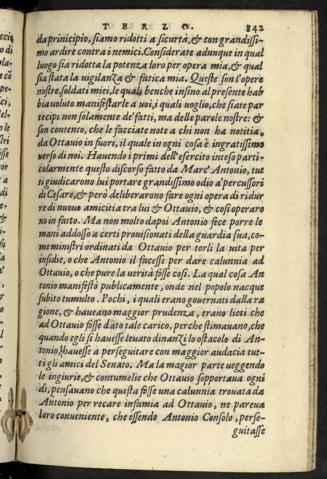 TERZO. 142
da prinicipio, siamo ridotti a sicurtà, & con grandissi-
mo ardire contra i nemici. Considerate adunque in qual
luogo sia ridotta la potenza loro per opera mia, & qual
sia stata la uigilanza & fatica mia. Queste son l'opere
nostre, soldati miei, le quali benche infino al presente hab
bia uoluto manifestarle a uoi, i quali uoglio, che siate par
tecipi non solamente de' fatti, ma delle parole nostre: &
son contento, che le facciate note a chi non ha notitia,
da Ottauio in fuori, il quale in ogni cosa è ingratissimo
uerso di noi. Hauendo i primi dell'esercito inteso parti-
colarmente questo discorso fatto da Marc' Antonio, tut
ti giudicarono lui portare grandissimo odio a' percussori
di Cesare, & però deliberarono fare ogni opera di ridur
re di nuouo amicitia tra lui & Ottauio, & cosi operaro
no in fatto. Ma non molto dapoi Antonio fece porre le
mani addosso a certi prouisionati della guardia sua, co-
me ministri ordinati da Ottauio per torli la uita per
insidie, o che Antonio il facesse per dare calunnia ad
Ottauio, o che pure la uerità fosse cosi. La qual cosa An
tonio manifestò publicamente, onde nel popolo nacque
subito tumulto. Pochi, i quali erano gouernati dalla ra
gione, & haueano maggior prudenza, erano lieti che
ad Ottauio fosse dato tale carico, perche stimauano, che
quando egli si hauesse leuato dinanzi lo ostacolo di An-
tonio, hauesse a perseguitare con maggior audacia tut-
ti gli amici del Senato. Ma la magior parte ueggendo
le ingiurie, & contumelie che Ottauio sopportaua ogni
dì, pensauano che questa fosse una calunnia trouata da
Antonio per rocare infamia ad Ottauio, ne pareua
loro conueniente, che essendo Antonio Consolo, perse-
guitasse